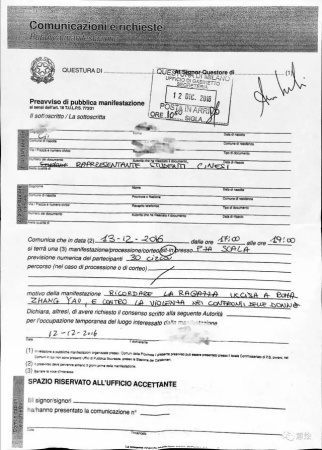 Comunicazioni e richieste
Pubbliche manifestazioni
QUESTURA DI
Al Signor Questore di
(1)
QUESTURA DI MILANO
UFFICIO DI GABINETTO
SEGRETERIA
12 DIC. 2016
POSTA IN ARRIVO
ORE SIGLA
Preavviso di pubblica manifestazione
ai sensi dell'art. 18 T.U.L.P.S. 773/31
Il sottoscritto / La sottoscritta
Nome
Data di nascita
Comune di nascita
Comune di residenza
Via / Piazza e numero civico
Numero del documento
Autorità che ha rilasciato il documento
Data di rilascio
RAPPRESENTANTE STUDENTI CINESI
Cognome
Nome
Data di nascita
Comune di nascita
Provincia o Nazione
Comune di residenza
Via / Piazza e numero civico
Recapito telefonico
Numero del documento
Autorità che ha rilasciato il documento
Data di rilascio
In qualità di
Comunica che in data (2) 13-12-2016 dalle ore 17:00 alle ore 19:00
si terrà una (3) manifestazione/processione/corteo/sit-in presso P.ZA SCALA
previsione numerica dei partecipanti 30 CIRCA
percorso (nel caso di processione o di corteo)
motivo della manifestazione RICORDARE LA RAGAZZA UCCISA A ROMA
ZHANG YAO, E CONTRO LA VIOLENZA NEI CONFRONTI DELLE DONNE
Dichiara, altresì, di avere richiesto il consenso scritto alla seguente Autorità
per l'occupazione temporanea del luogo interessato dalla manifestazione
12-12-2016
Data
Il dichiarante
(3) Barrare la voce d'interesse.
SPAZIO RISERVATO ALL'UFFICIO ACCETTANTE
Il signor/signori
ha/hanno presentato la comunicazione n°
Data
Timbro/sigla